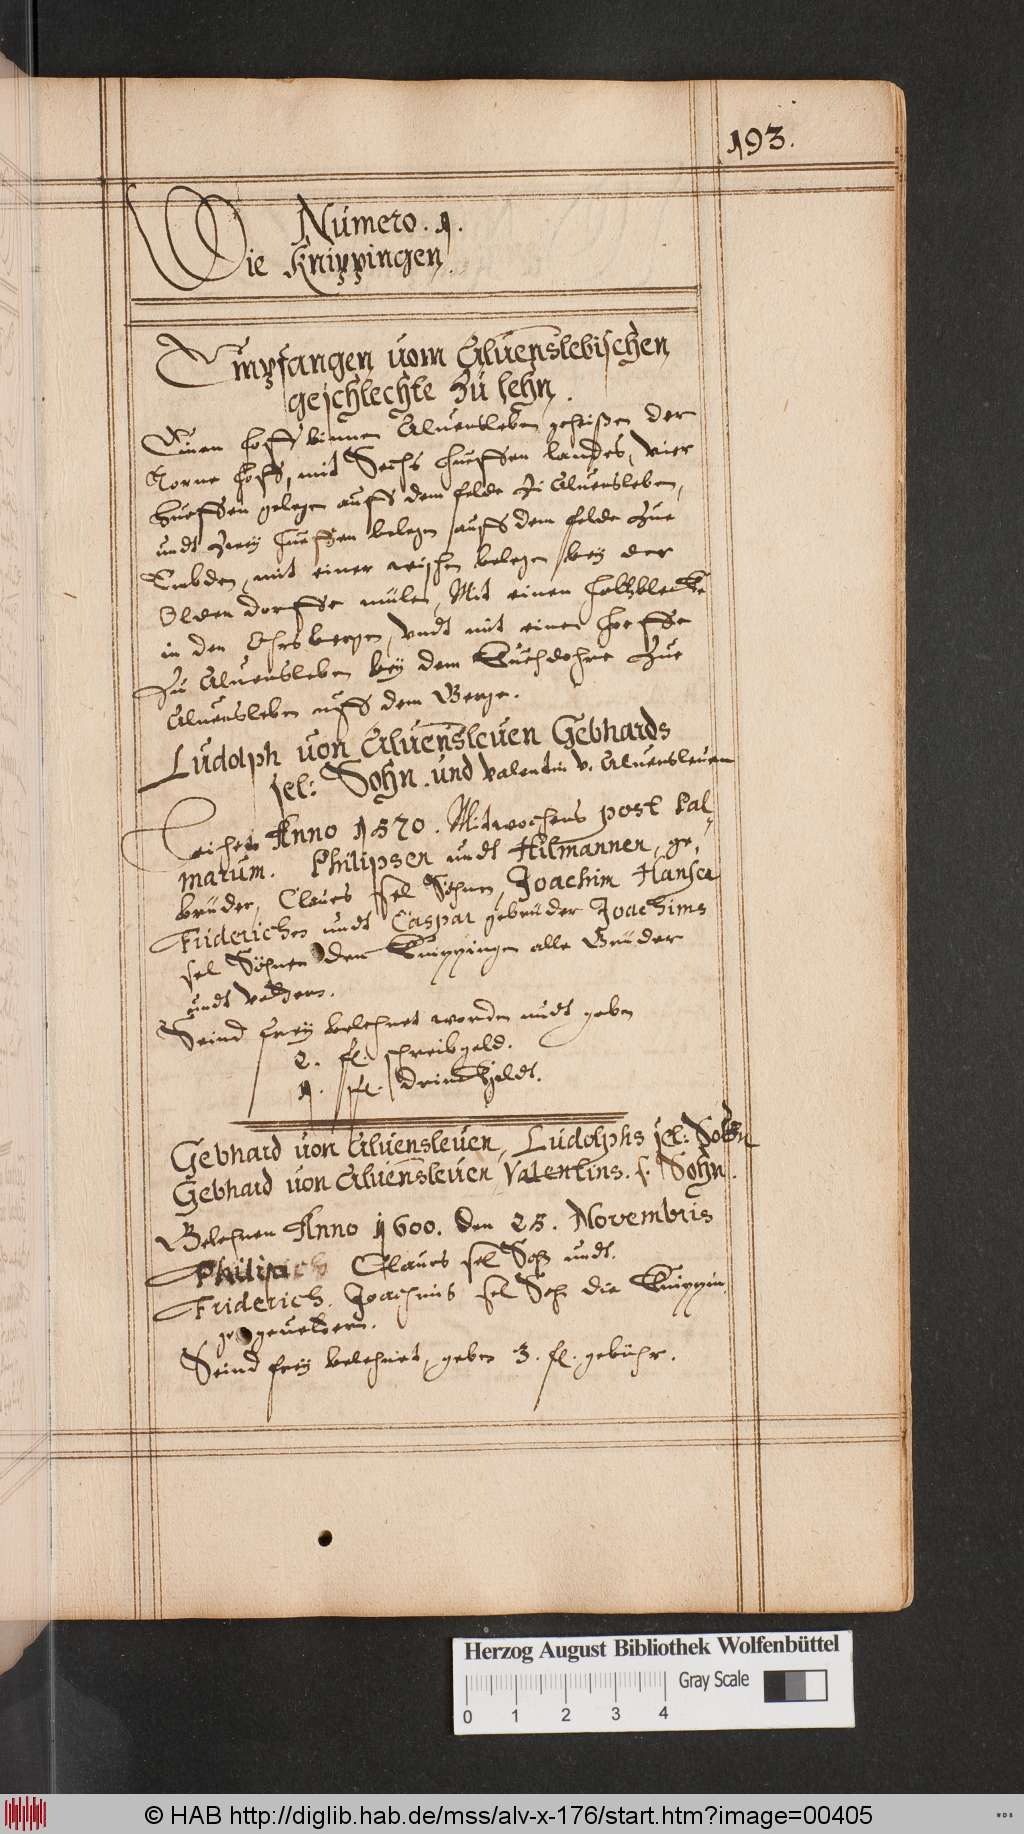 193.
Numero. 1.
Die Knippingen
Empfangen vom Aluenslebischen
geschlechte zu lehn.
Einen hoff binnen Aluensleben geheißen der
Korne hoff, mit Sechs hueffen landes, vier
hueffen gelegen auff dem felde zu Aluensleben,
undt zwey hueffen belegen auff dem felde zue
Embden, mit einer wischen belegen bey der
Olden dorffer mülen, Mit einen holtzblecke
in den bergen, undt mit einen hoeffe
zu Aluensleben bey dem zue
Aluensleben uff dem Berge.
Ludolph von Aluensleuen Gebhards
sel: Sohn. und Valentin v. Aluensleuen
Leihet Anno 1570. Mitwochens post Pal-
marum. Philipsen undt Hilmannen, ge-
brüder, Claues sel Söhnen, Joachim Hansen
Friderichen undt Caspar gebrüder Joachims
sel Söhnen den Knippingen alle Brüder
undt vettern.
Seind frey belehnet worden undt geben
2. fl. schreibgeld.
1. fl. drinckgeldt.
Gebhard von Aluensleuen, Ludolphs sel: Sohn
Gebhard von Aluensleuen Valentins. s. Sohn.
Belehnen Anno 1600. den 25. Novembris
Claues sel Sohn undt.
Friderich. Joachims sel Sohn die Knippin-
ge geuettern.
Seind frey belehnet, geben 3. fl. gebühr.
Herzog August Bibliothek Wolfenbüttel
Gray Scale
0 1 2 3 4
© HAB http://diglib.hab.de/mss/alv-x-176/start.htm?image=00405